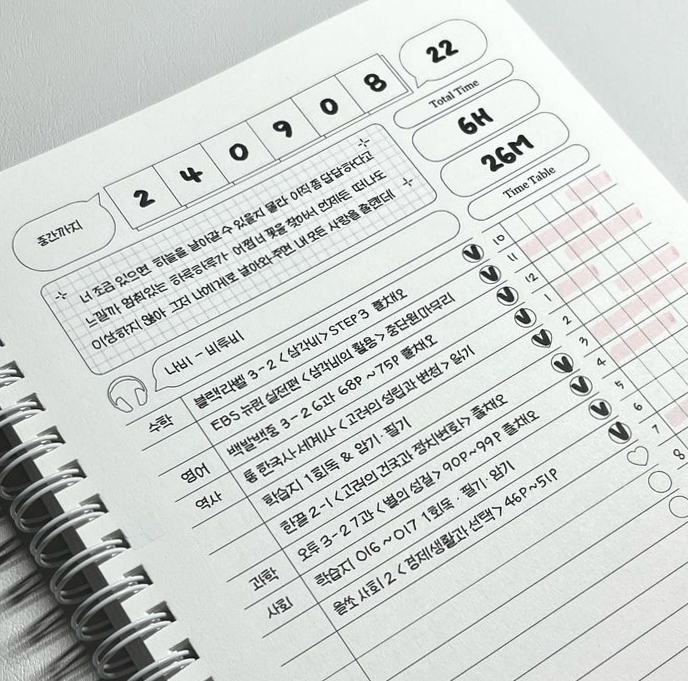 중간까지
2 4 0 9 0 8
22
Total Time
6H
26M
Time Table
너 조금 있으면 하늘을 날아갈 수 있을지 몰라 아직 좀 답답하다고
느낄까 멈춰있는 하루하루가 어쩜 너 꽃을 찾아서 언제든 떠나도
이상하지 않아 그저 나에게로 날아와 주면 내 모든 사랑을 줄텐데
나비 - 비투비
수학 블랙라벨 3-2 <삼각비> STEP 3 풀채오
EBS 뉴런 실전편 <삼각비의 활용> 중단원 마무리
영어 백발백중 3-2 6과 68P ~ 75P 풀채오
역사 통한국사 세계사 <고려의 성립과 변천> 읽기
학습지 1회독 & 암기·필기
한끝 2-1 <고려의 건국과 정치변화> 풀채오
과학 오투 3-2 7과 <별의 성질> 90P~99P 풀채오
사회 학습지 016 ~ 017 1회독·필기·암기
올쏘 사회 2 <경제생활과 선택> 46P~51P
10
11
12
1
2
3
4
5
6
7
8